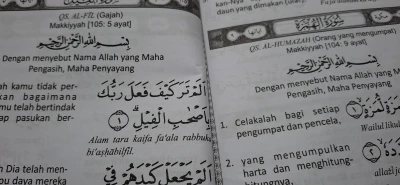 QS. AL-FĪL (Gajah)
Makkiyyah [105: 5 ayat]
بِسْمِ اللهِ الرَّحْمٰنِ الرَّحِيْمِ
Dengan menyebut Nama Allah yang Maha
Pengasih, Maha Penyayang
ah kamu tidak per-
kan bagaimana
mu telah bertindak
ap pasukan ber-
اَلَمْ تَرَ كَيْفَ فَعَلَ رَبُّكَ
بِاَصْحٰبِ الْفِيْلِ ۝١
Alam tara kaifa fa'ala rabbuk
bi'aṣḥābilfīl.
h Dia telah men-
pu daya mereka
اَلَمْ يَجْعَلْ كَيْدَهُمْ فِيْ
kan-Nya
daun yang dimakan (ulat).
سُوْرَةُ الْهُمَزَةِ
QS. AL-HUMAZAH (Orang yang mengumpat)
Makkiyyah [104: 9 ayat]
بِسْمِ اللهِ الرَّحْمٰنِ الرَّحِيْمِ
Dengan menyebut Nama Allah yang Ma
Pengasih, Maha Penyayang
1. Celakalah bagi setiap
pengumpat dan pencela,
لُّمَزَةٍ ۝١
Wailul likul
2. yang mengumpulkan
harta dan menghitung-
hitungnya,